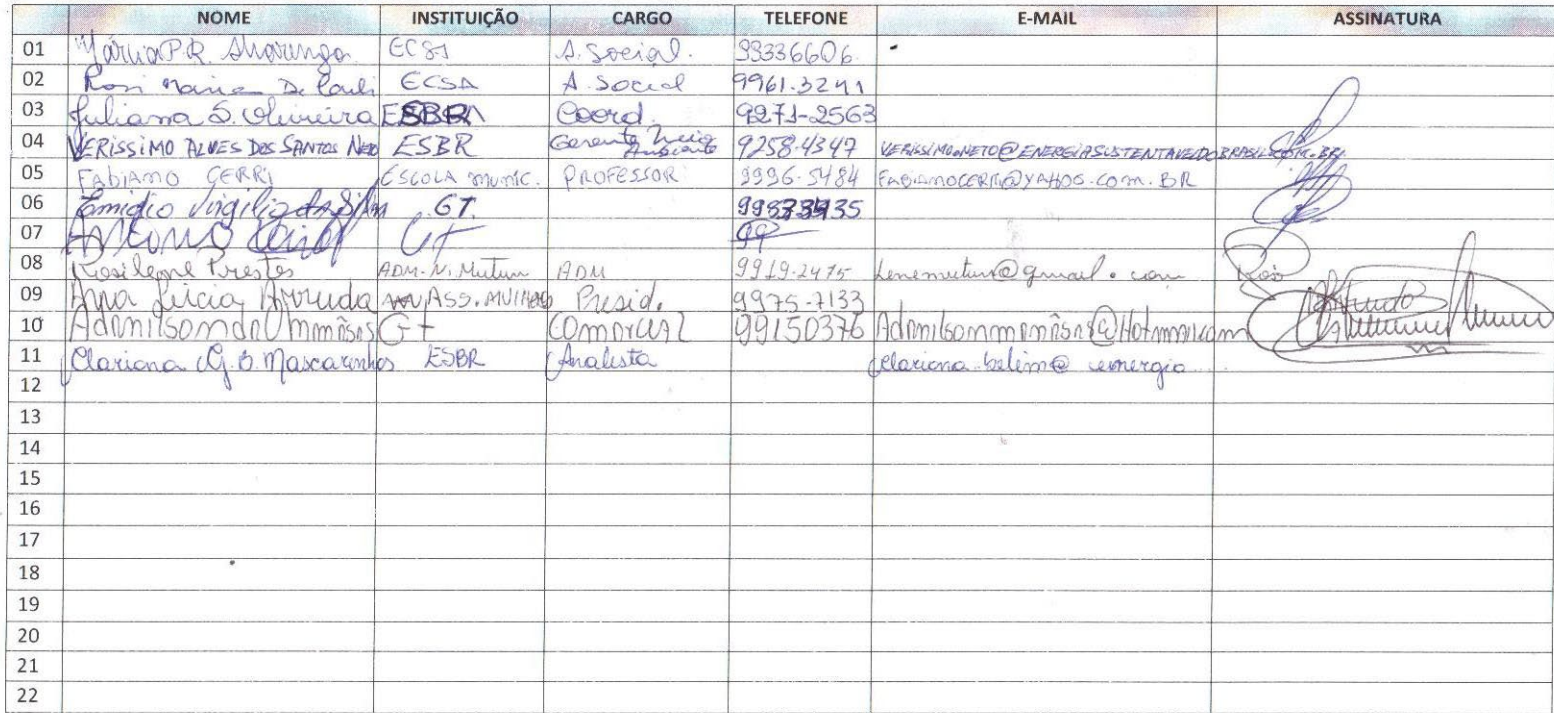 NOME INSTITUIÇÃO CARGO TELEFONE E-MAIL ASSINATURA
01 Márcia P.R. ECSA A. Social. 99336606
02 Rosi Maria De Pauli ECSA A. Social 9961.3241
03 Juliana S. Oliveira ESBR Coord. 9271-2563
04 VERISSIMO ALVES DOS SANTOS NETO ESBR Gerente Meio Ambiente 9258-4347 VERISSIMO.NETO@ENERGIASUSTENTAVELDOBRASIL.COM.BR
05 FABIANO CERRI ESCOLA munic. PROFESSOR 9996-5484 FABIANOCERRI@YAHOO.COM.BR
06 Emidio Virgilio da Silva GT.
07 Antonio GT
08 Rosilene Prestes ADM-N. Mutum ADM 9919-2475 lenemutum@gmail.com Rosi
09 Ana Lúcia Arruda ASS. MULHERES Presid. 9975-7133
10 GT COMERCIAL 99150376
11 Clariana G. B. Mascarenhas ESBR Analista clariana.belem@energia...
12
13
14
15
16
17
18
19
20
21
22